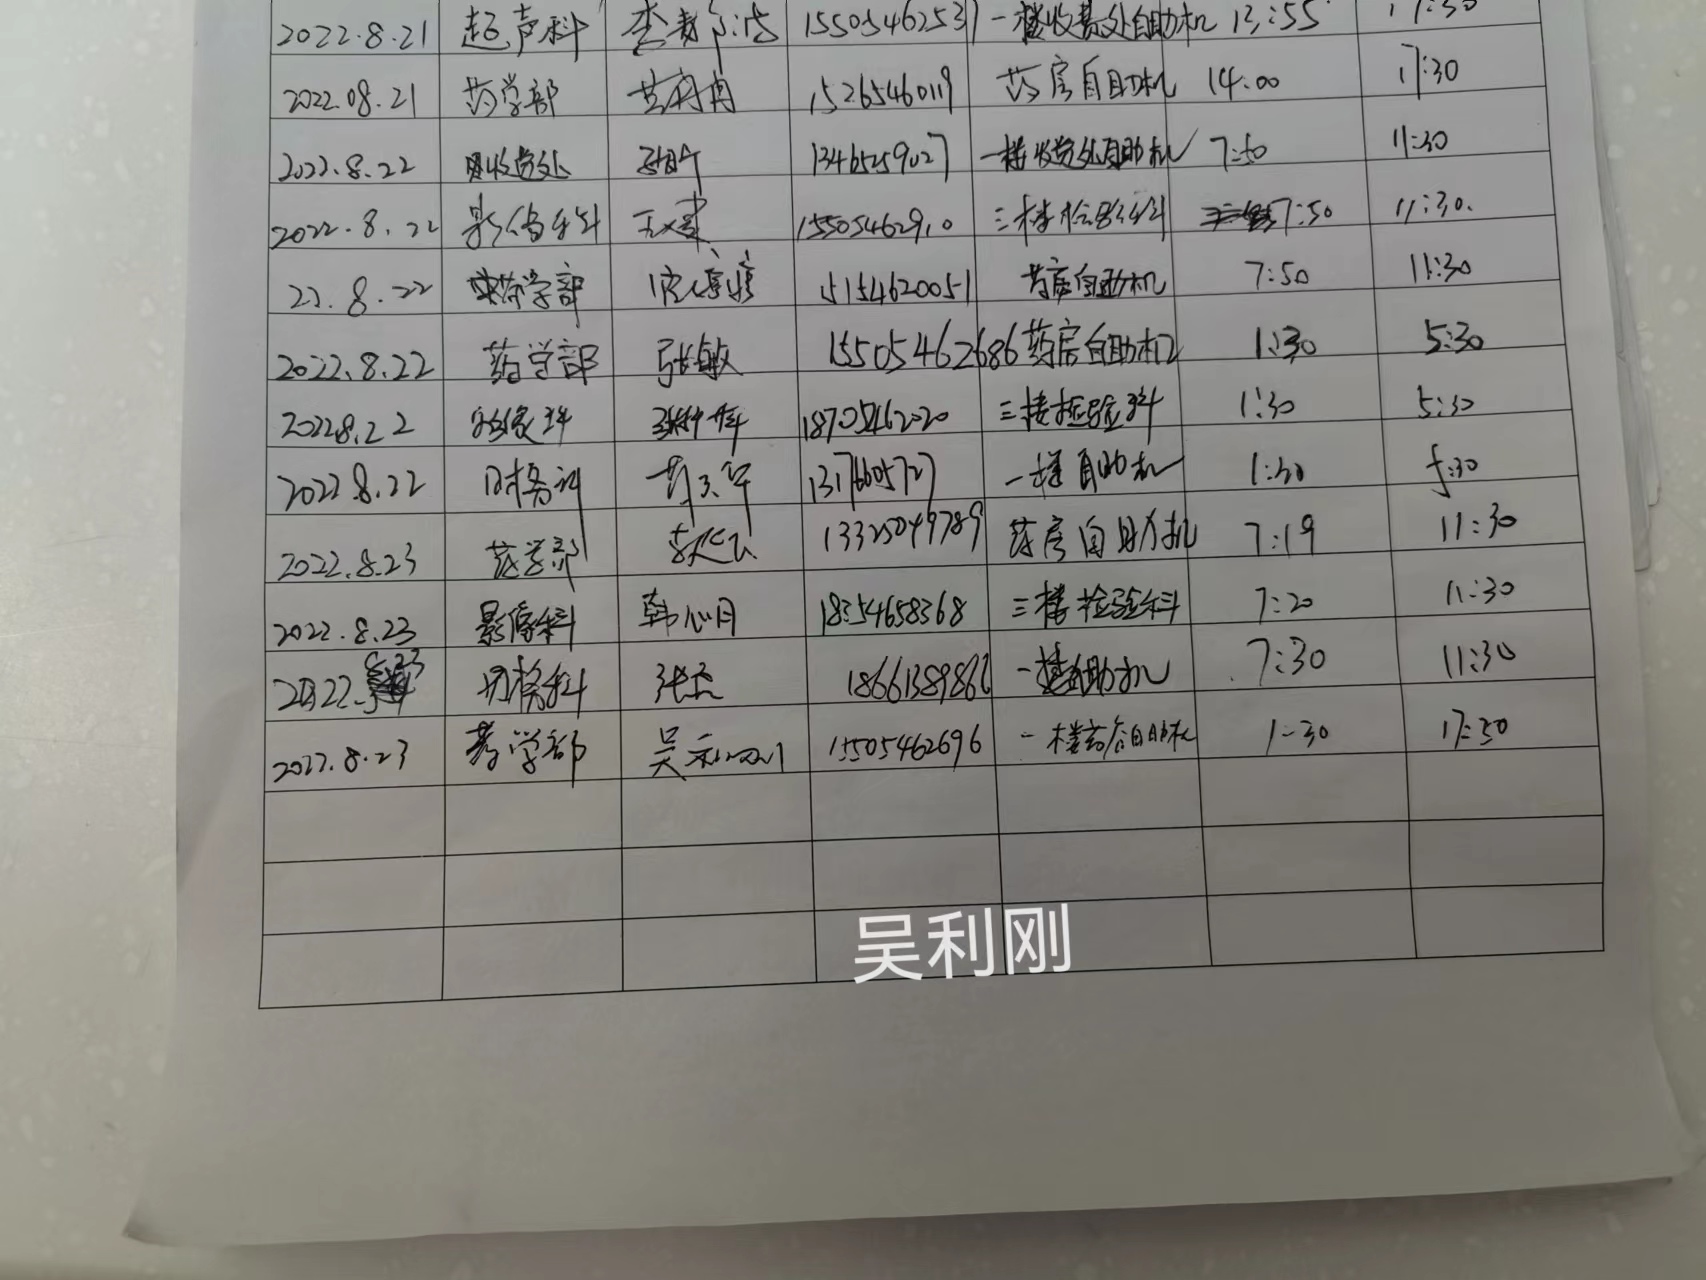 2022.8.21 超声科 李 15505462531 一楼收费处自助机 13:55 17:30
2022.08.21 药学部 15265460119 药房自助机 14:00 17:30
2022.8.22 收费处 13465259027 一楼收费处自助机 7:50 11:30
2022.8.22 影像科 15505462910 三楼检验科 7:50 11:30.
22.8.22 药学部 15154620051 药房自助机 7:50 11:30
2022.8.22 药学部 张敏 15505462686 药房自助机 1:30 5:30
2022.8.22 影像科 18705462020 三楼检验科 1:30 5:30
2022.8.22 财务科 13176605727 一楼自助机 1:30 5:30
2022.8.23 药学部 13325049789 药房自助机 7:19 11:30
2022.8.23 影像科 韩心月 18354658368 三楼检验科 7:20 11:30
2022.8.23 财务科 张 18661389866 一楼自助机 7:30 11:30
2022.8.23 药学部 吴利刚 15505462696 一楼药房自助机 1-30 17:30
吴利刚